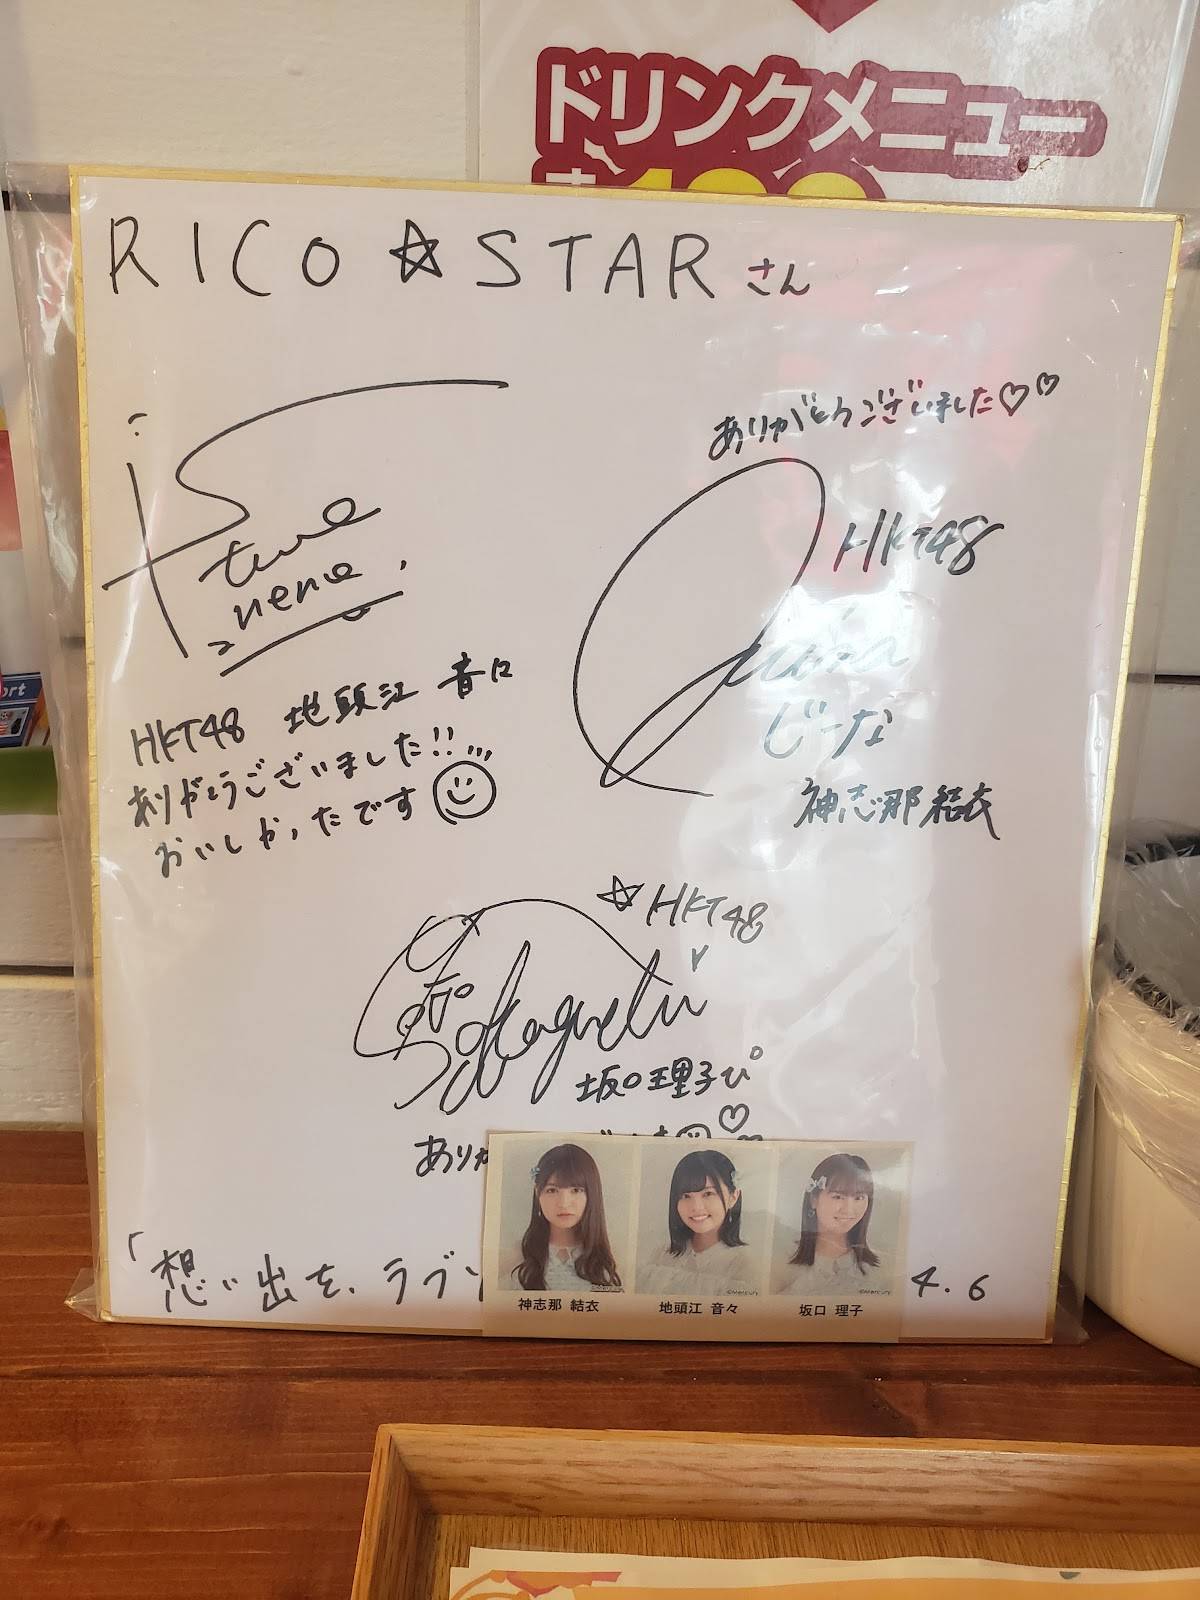 ドリンクメニュー
RICO☆STARさん
ありがとうございました♡♡
HKT48
じーな
神志那結衣
nene
HKT48 地頭江音々
ありがとうございました!!
おいしかったです
☆HKT48
坂口理子ぴ
ありが
「想い出を、ラブソ
4.6
神志那 結衣
地頭江 音々
坂口 理子
©Mercury
©Mercury
©Mercury
ort